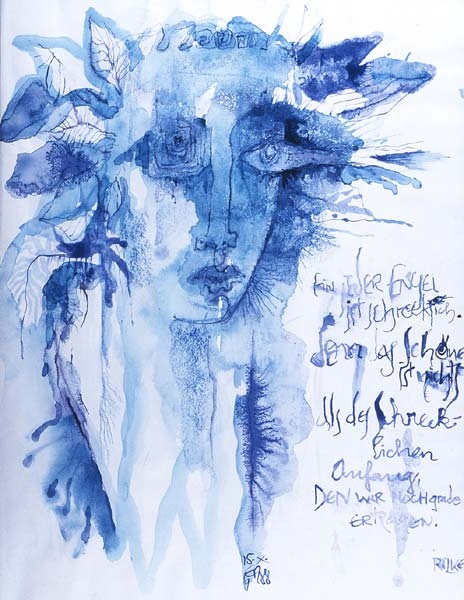 Ein jeder ENGEL
ist schrecklich.
Denn das Schöne
ist nichts
als des Schreck-
lichen
Anfang,
DEN WIR NOCH GRADE
ERTRAGEN.
RILKE
15. X.